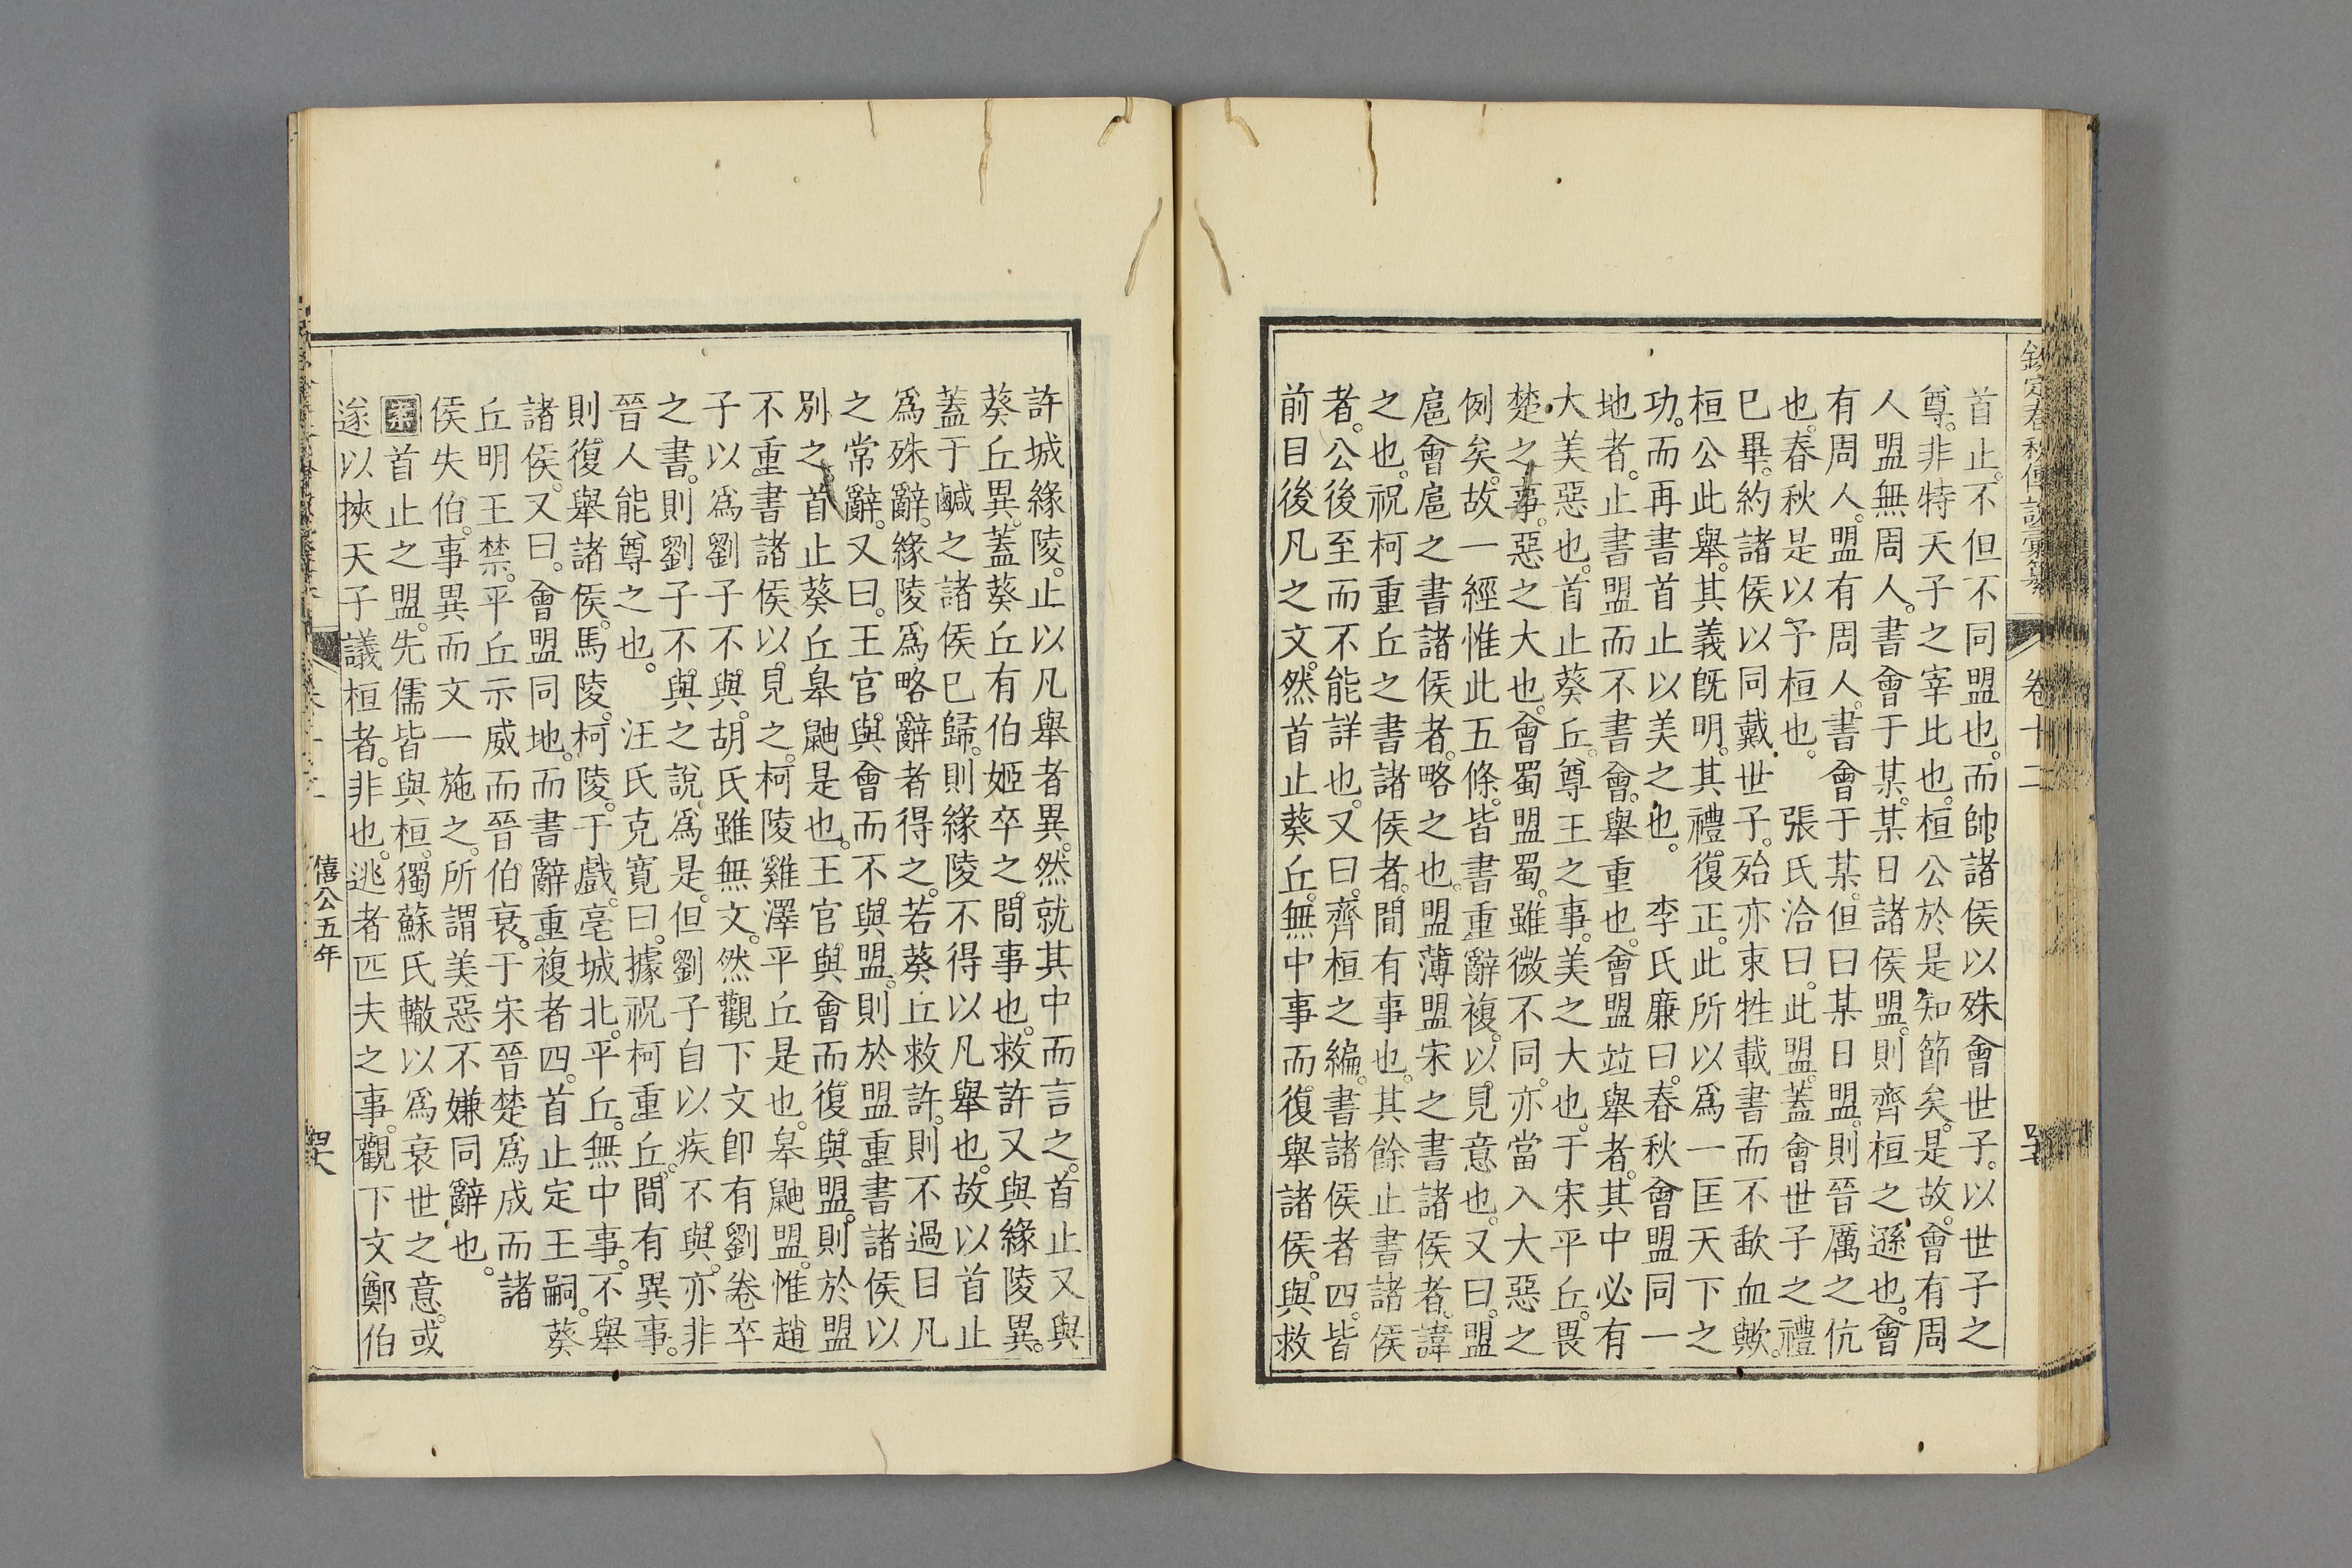 欽定春秋傳說彙纂 卷十二
首止。不但不同盟也。而帥諸侯以殊會世子。以世子之
尊。非特天子之宰比也。桓公於是知節矣。是故。會有周
人盟無周人。書會于某。某日諸侯盟。則齊桓之遜也。會
有周人。盟有周人。書會于某。但曰某日盟。則晉厲之伉
也。春秋是以予桓也。 張氏洽曰。此盟。蓋會世子之禮
已畢。約諸侯以同戴世子。殆亦束牲載書而不歃血歟。
桓公此舉。其義旣明。其禮復正。此所以爲一匡天下之
功。而再書首止以美之也。 李氏廉曰。春秋會盟同一
地者。止書盟而不書會。舉重也。會盟竝舉者。其中必有
大美惡也。首止葵丘。尊王之事。美之大也。于宋平丘。畏
楚之事。惡之大也。會蜀盟蜀。雖微不同。亦當入大惡之
例矣。故一經惟此五條。皆書重辭複。以見意也。又曰。盟
扈會扈之書諸侯者。略之也。盟薄盟宋之書諸侯者。諱
之也。祝柯重丘之書諸侯者。間有事也。其餘止書諸侯
者。公後至而不能詳也。又曰。齊桓之編。書諸侯者四。皆
前目後凡之文。然首止葵丘。無中事而復舉諸侯。與救
許城緣陵。止以凡舉者異。然就其中而言之。首止又與
葵丘異。蓋葵丘有伯姬卒之。間事也。救許又與緣陵異。
蓋于鹹之諸侯已歸。則緣陵不得以凡舉也。故以首止
爲殊辭。緣陵爲略辭者得之。若葵丘救許。則不過目凡
之常辭。又曰。王官與會而不與盟。則於盟重書諸侯以
別之。首止葵丘皋鼬是也。王官與會而復與盟。則於盟
不重書諸侯以見之。柯陵雞澤平丘是也。皋鼬盟。惟趙
子以爲劉子不與。胡氏雖無文。然觀下文卽有劉卷卒
之書。則劉子不與之說爲是。但劉子自以疾不與。亦非
晉人能尊之也。 汪氏克寬曰。據祝柯重丘。間有異事。
則復舉諸侯。馬陵。柯陵。于戲。亳城北。平丘。無中事。不舉
諸侯。又曰。會盟同地。而書辭重複者四。首止定王嗣。葵
丘明王禁。平丘示威而晉伯衰。于宋晉楚爲成而諸
侯失伯。事異而文一施之。所謂美惡不嫌同辭也。
案首止之盟。先儒皆與桓。獨蘇氏轍以爲衰世之意。或
遂以挾天子議桓者。非也。逃者匹夫之事。觀下文鄭伯
僖公五年